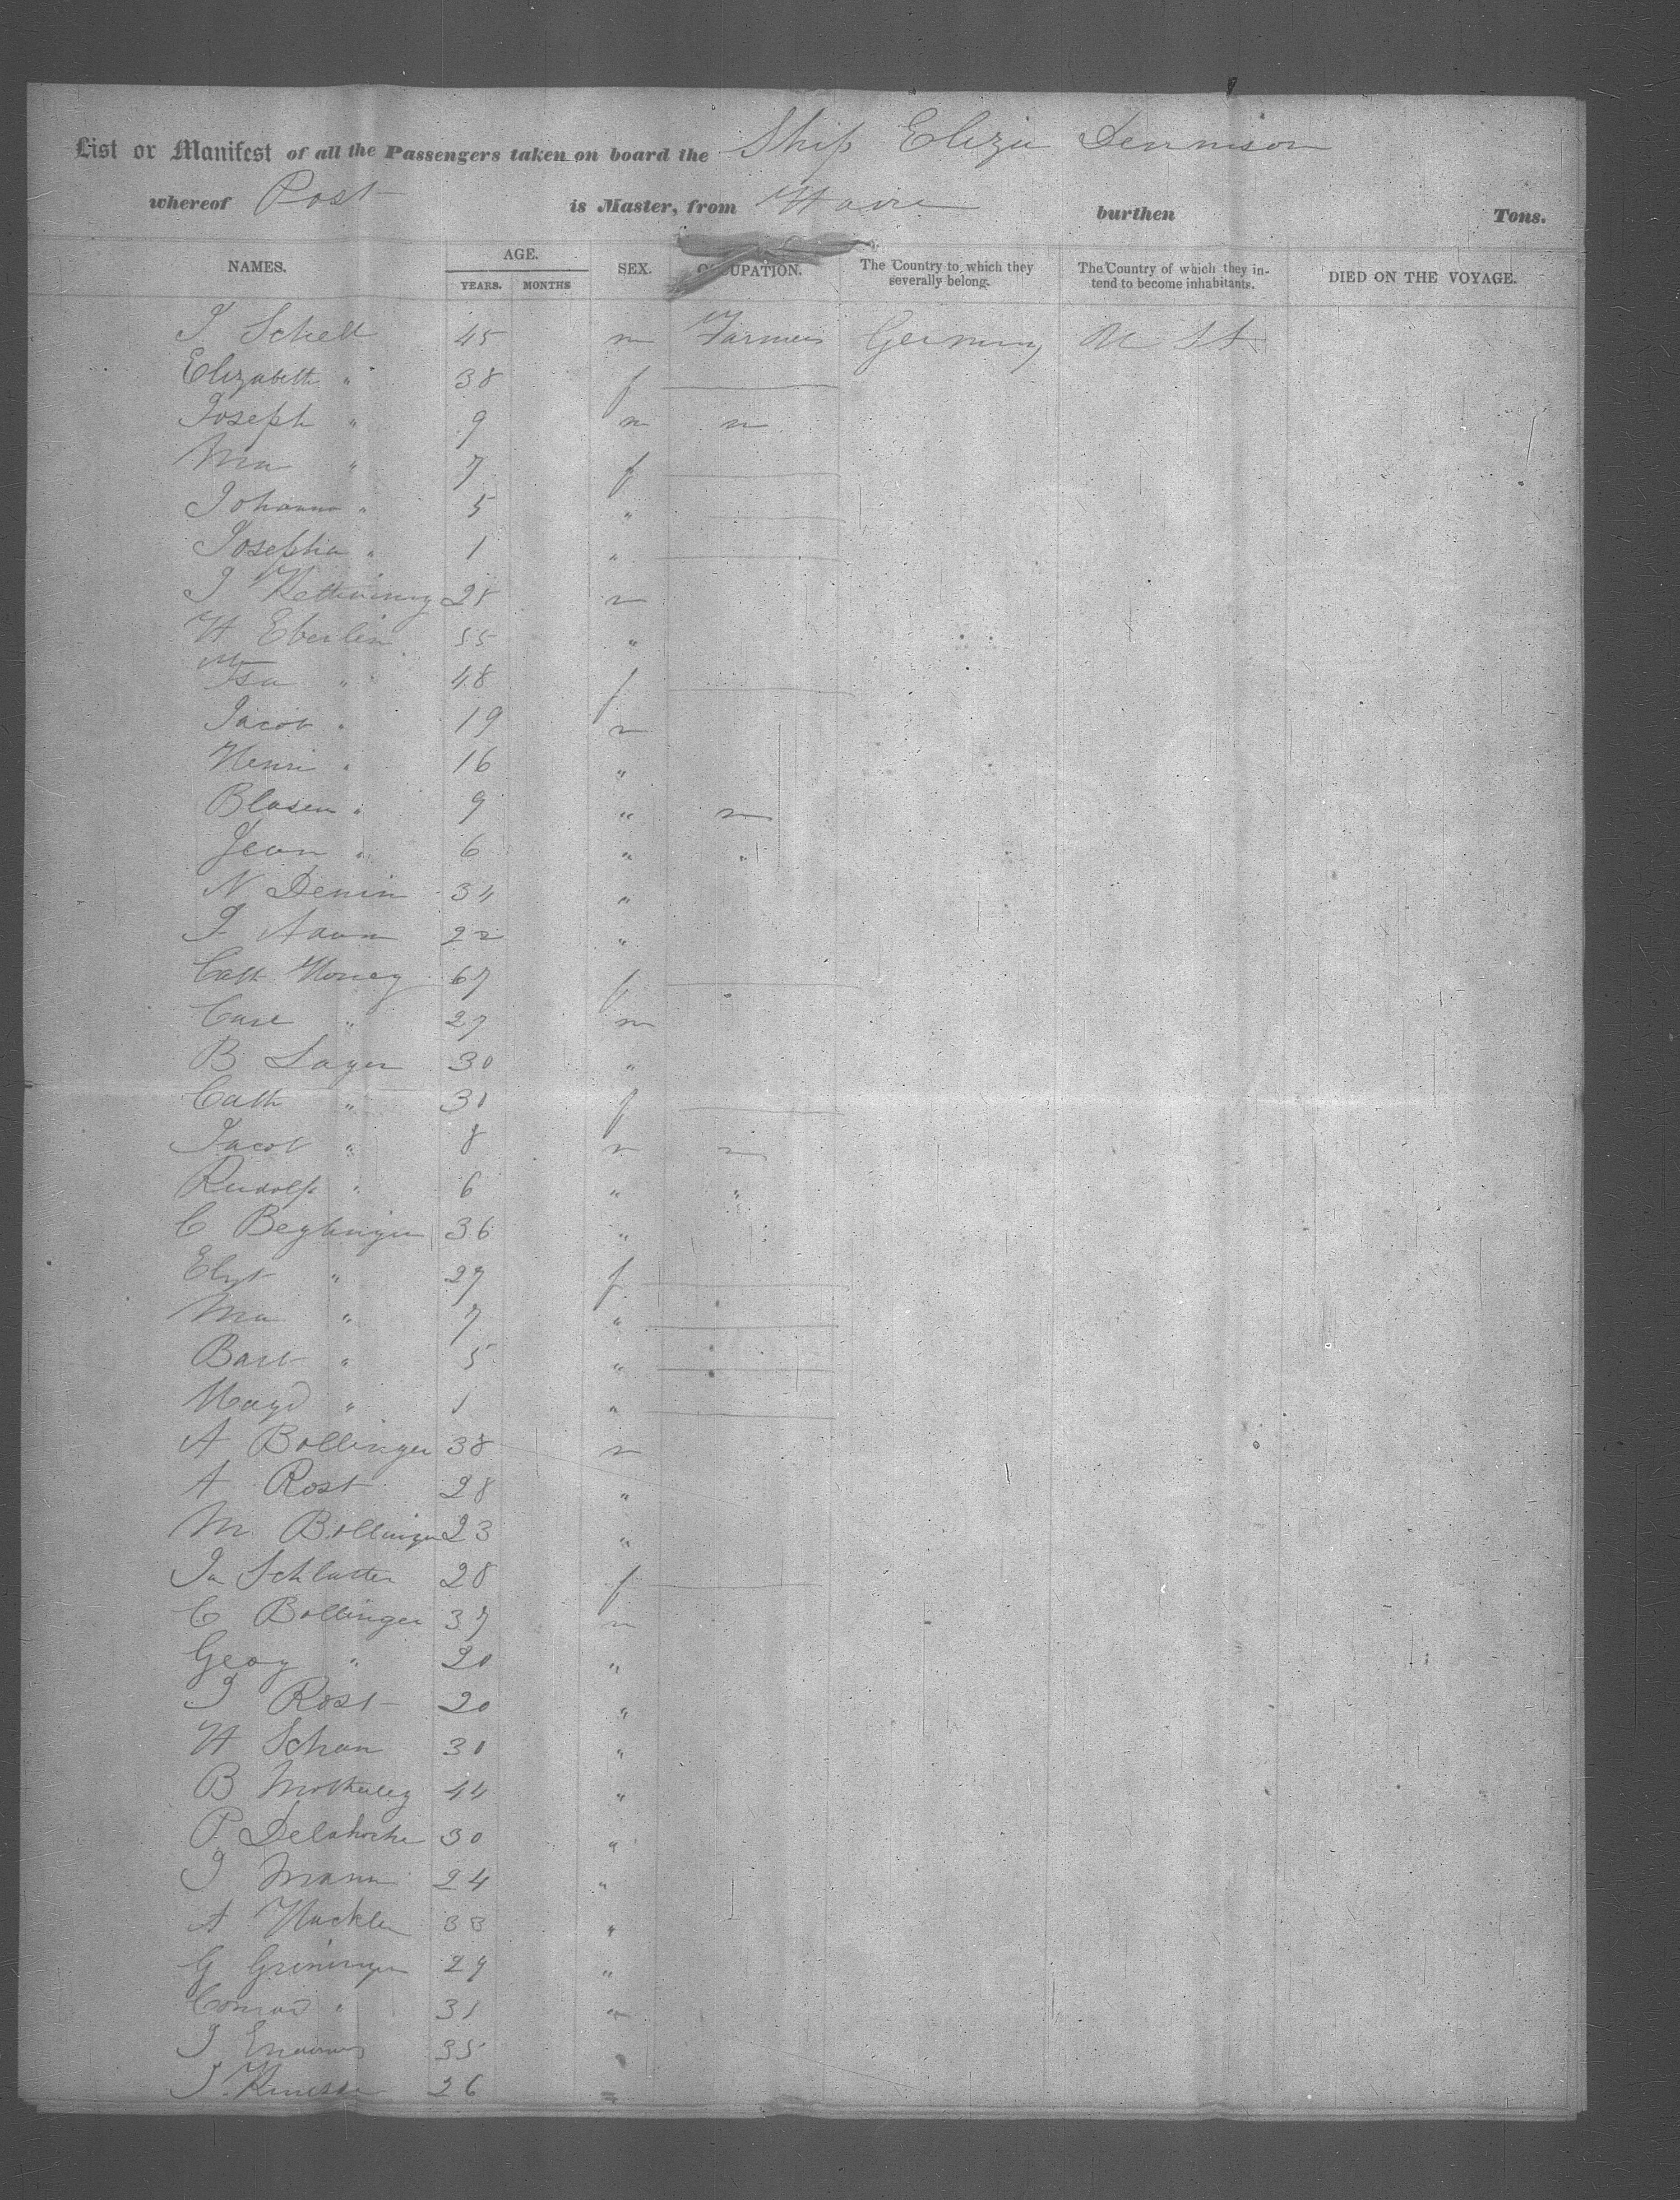 List or Manifest of all the Passengers taken on board the Ship Eliza Dennison
whereof Post is Master, from Havre burthen Tons.
NAMES. AGE. YEARS. MONTHS SEX. OCCUPATION. The Country to which they severally belong. The Country of which they intend to become inhabitants. DIED ON THE VOYAGE.
J Schell 45 m Farmers Germany U St
Elizabeth " 38 f
Joseph " 9 m
Ma " 7 f
Johanna " 5 "
Josephia " 1 "
J 28 m
H Eberlin 55 "
" 48 f
Jacob " 19 m
Henri " 16 "
Blasen " 9 "
Jean " 6 " "
N Denin 34 "
J Adam 22 "
Cath 67 f
Carl " 27 m
B Sager 30 "
Cath " 30 f
Jacob " 8 m
Rudolf " 6 " "
C 36 "
Elist " 27 f
Ma " 7 "
Barb " 5 "
Magd " 1 "
A Bollinger 38 m
A Rost 28 "
M Bollinger 23 "
Ja Schlatter 28 f
C Bollinger 37 m
Georg " 20 "
J Rost 20 "
H Schan 30 "
B 44 "
P Delahoche 30 "
J Mann 24 "
A Hackler 33 "
G Greninger 29 "
Conrad " 31 "
J 35 "
J 26